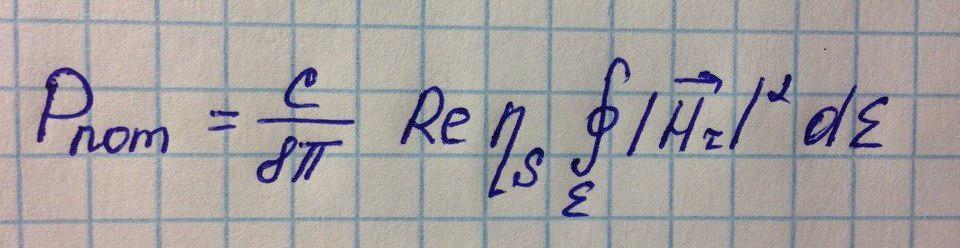 Pпот = c/8π Re η_S ∮_Σ |H⃗_τ|² dΣ